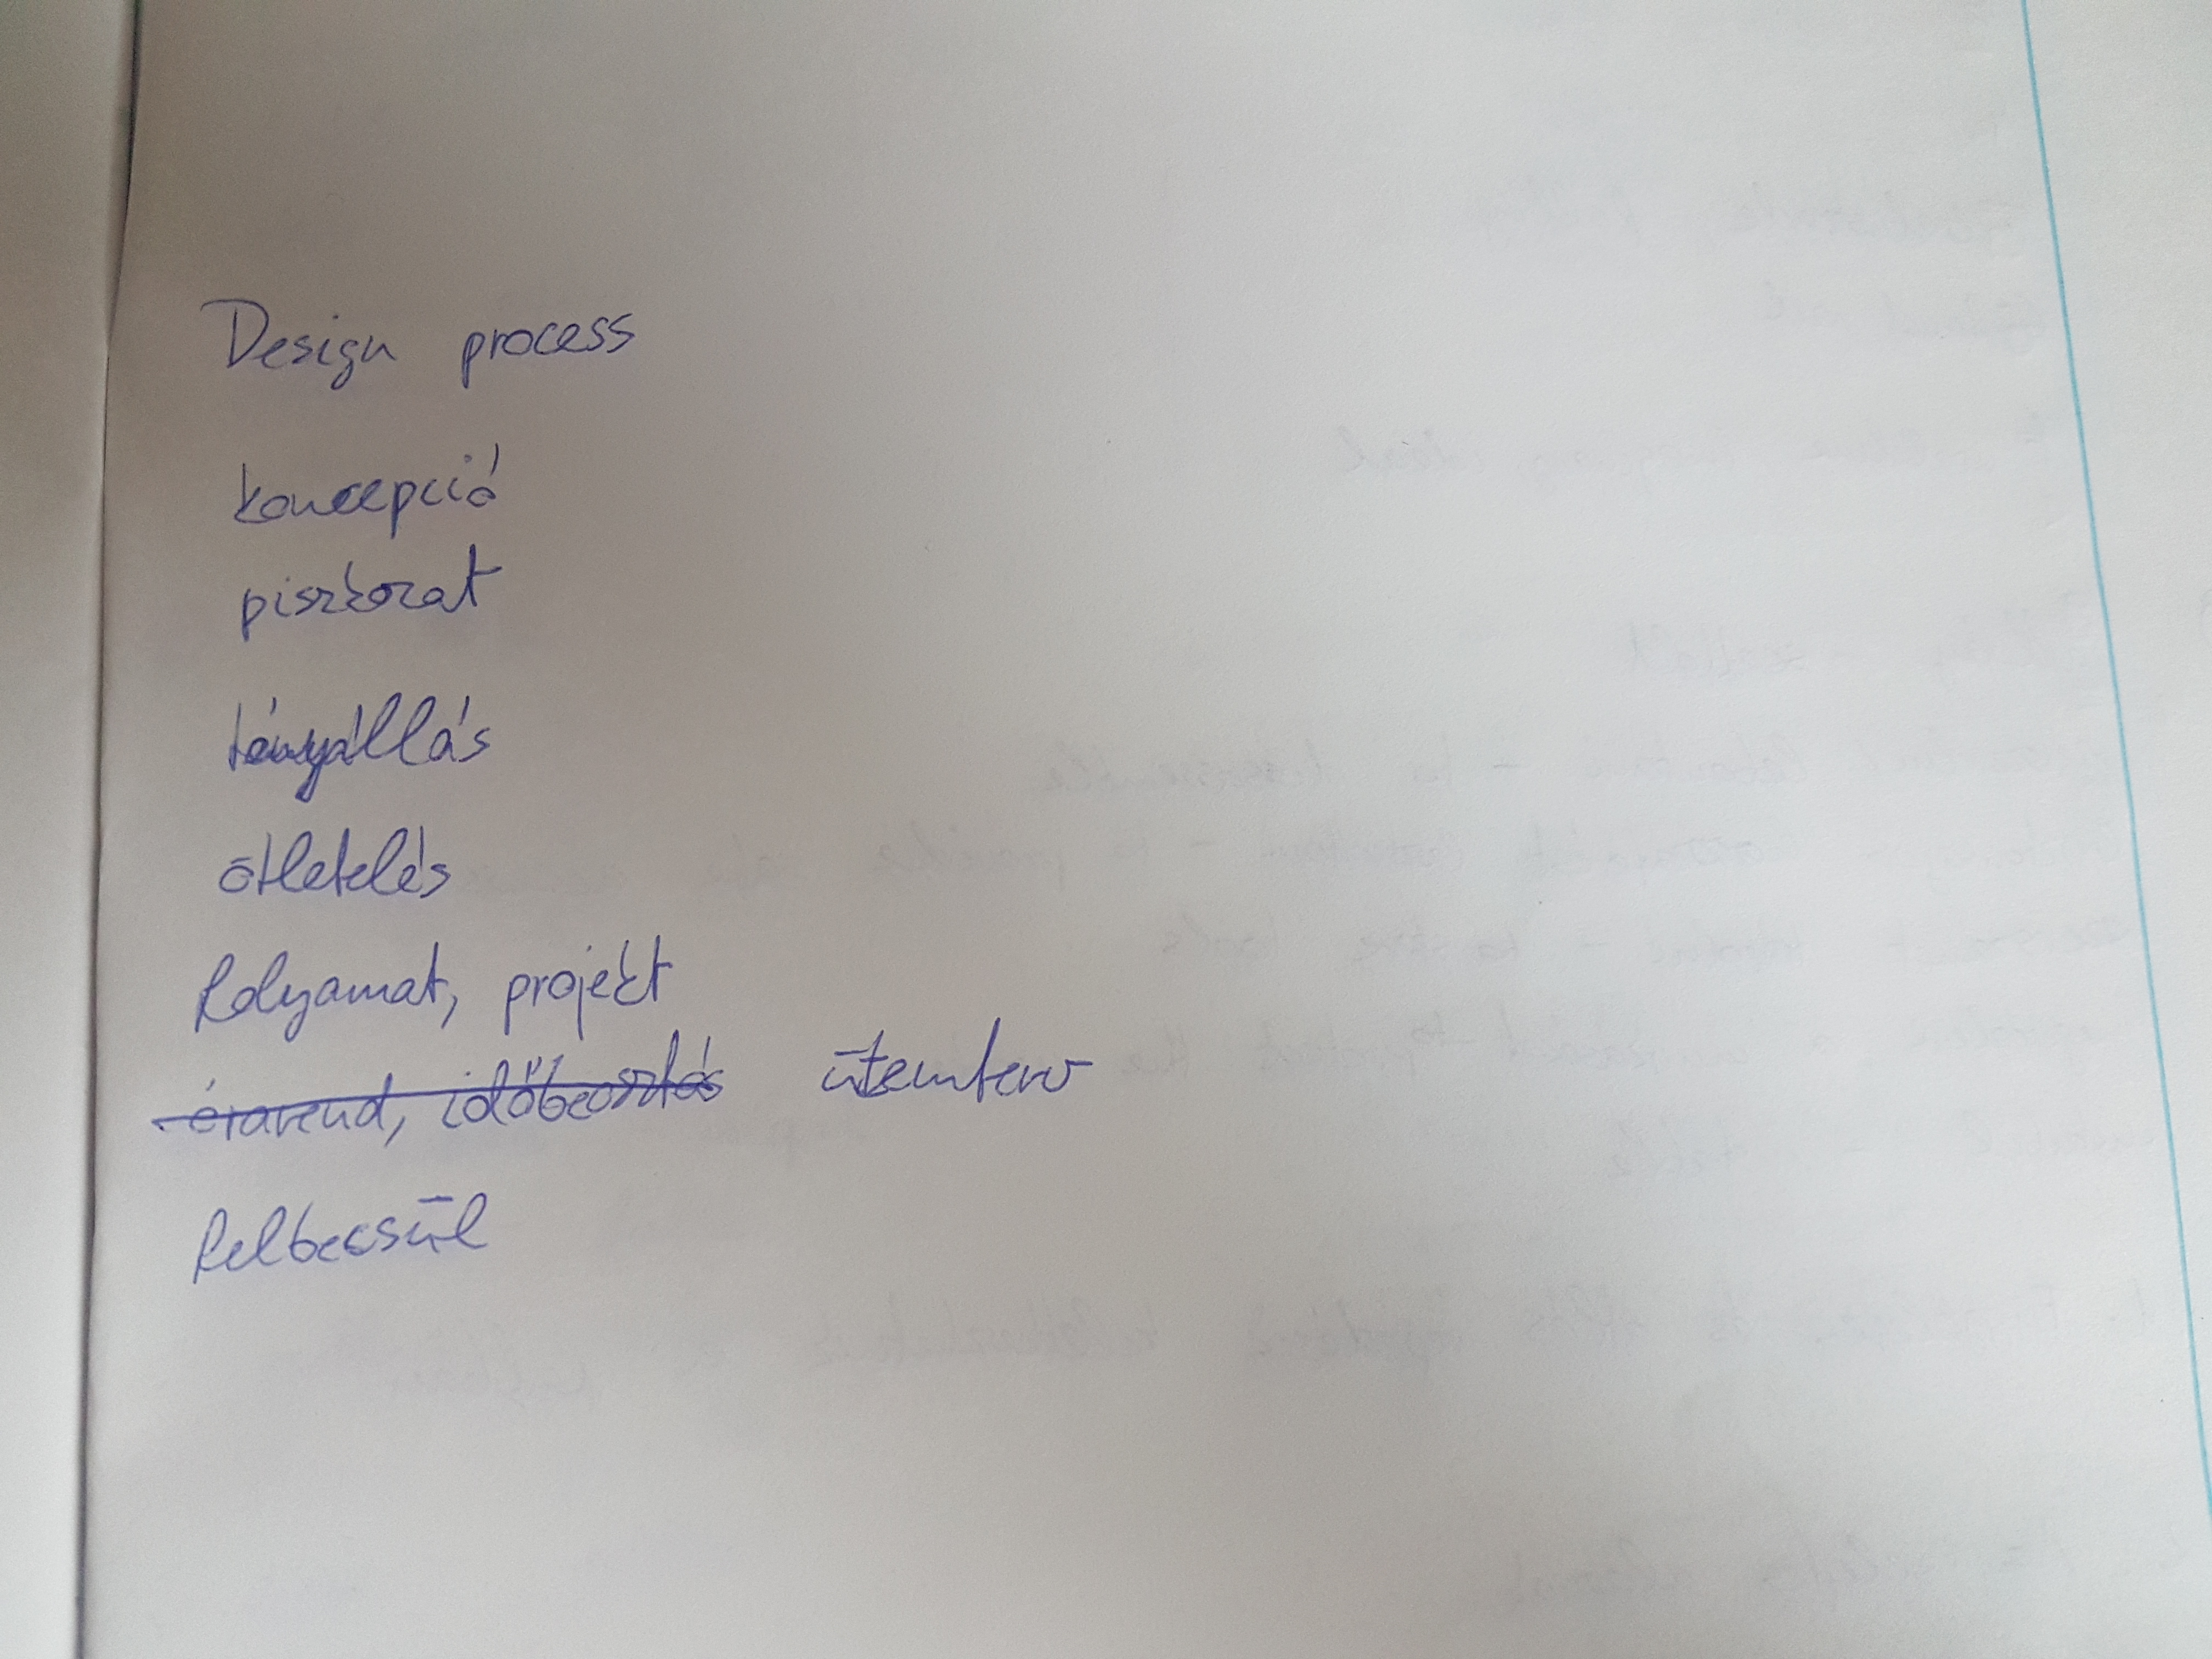 Design process
koncepció
piszkozat
tényállás
ötletelés
folyamat, projekt
órarend, időbeosztás ütemterv
felbecsül